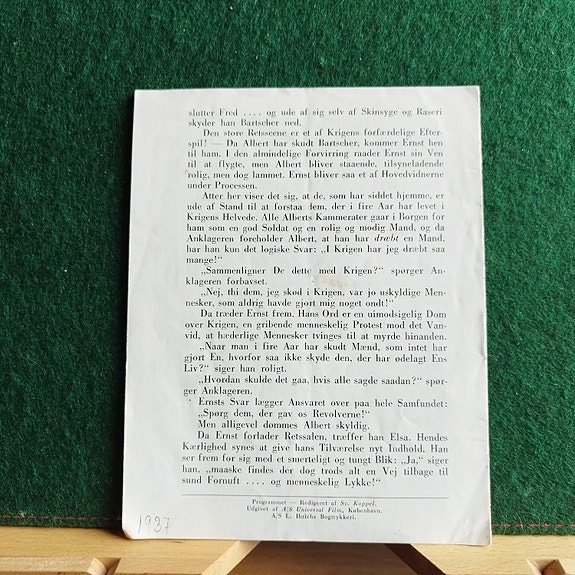 slutter Fred .... og ude af sig selv af Skinsyge og Raseri
skyder han Bartscher ned.
Den store Retsscene er et af Krigens forfærdelige Efter-
spil! — Da Albert har skudt Bartscher, kommer Ernst hen
til ham. I den almindelige Forvirring raader Ernst sin Ven
til at flygte, men Albert bliver staaende, tilsyneladende
rolig, men dog lammet. Ernst bliver saa et af Hovedvidnerne
under Processen.
Atter her viser det sig, at de, som har siddet hjemme, er
ude af Stand til at forstaa dem, der i fire Aar har levet i
Krigens Helvede. Alle Alberts Kammerater gaar i Borgen for
ham som en god Soldat og en rolig og modig Mand, og da
Anklageren foreholder Albert, at han har dræbt en Mand,
har han kun det logiske Svar: „I Krigen har jeg dræbt saa
mange!“
„Sammenligner De dette med Krigen?“ spørger An-
klageren forbavset.
„Nej, thi dem, jeg skød i Krigen, var jo uskyldige Men-
nesker, som aldrig havde gjort mig noget ondt!“
Da træder Ernst frem. Hans Ord er en uimodsigelig Dom
over Krigen, en gribende menneskelig Protest mod det Van-
vid, at hæderlige Mennesker tvinges til at myrde hinanden.
„Naar man i fire Aar har skudt Mænd, som intet har
gjort En, hvorfor saa ikke skyde den, der har ødelagt Ens
Liv?“ siger han roligt.
„Hvordan skulde det gaa, hvis alle sagde saadan?“ spør-
ger Anklageren.
Ernsts Svar lægger Ansvaret over paa hele Samfundet:
„Spørg dem, der gav os Revolverne!“
Men alligevel dømmes Albert skyldig.
Da Ernst forlader Retssalen, træffer han Elsa. Hendes
Kærlighed synes at give hans Tilværelse nyt Indhold. Han
ser frem for sig med et smerteligt og tungt Blik: „Ja,“ siger
han, „maaske findes der dog trods alt en Vej tilbage til
sund Fornuft .... og menneskelig Lykke!“
Programmet — Redigeret af Sv. Koppel.
Udgivet af A/S Universal Film, København.
A/S L. Ihrichs Bogtrykkeri.
1937